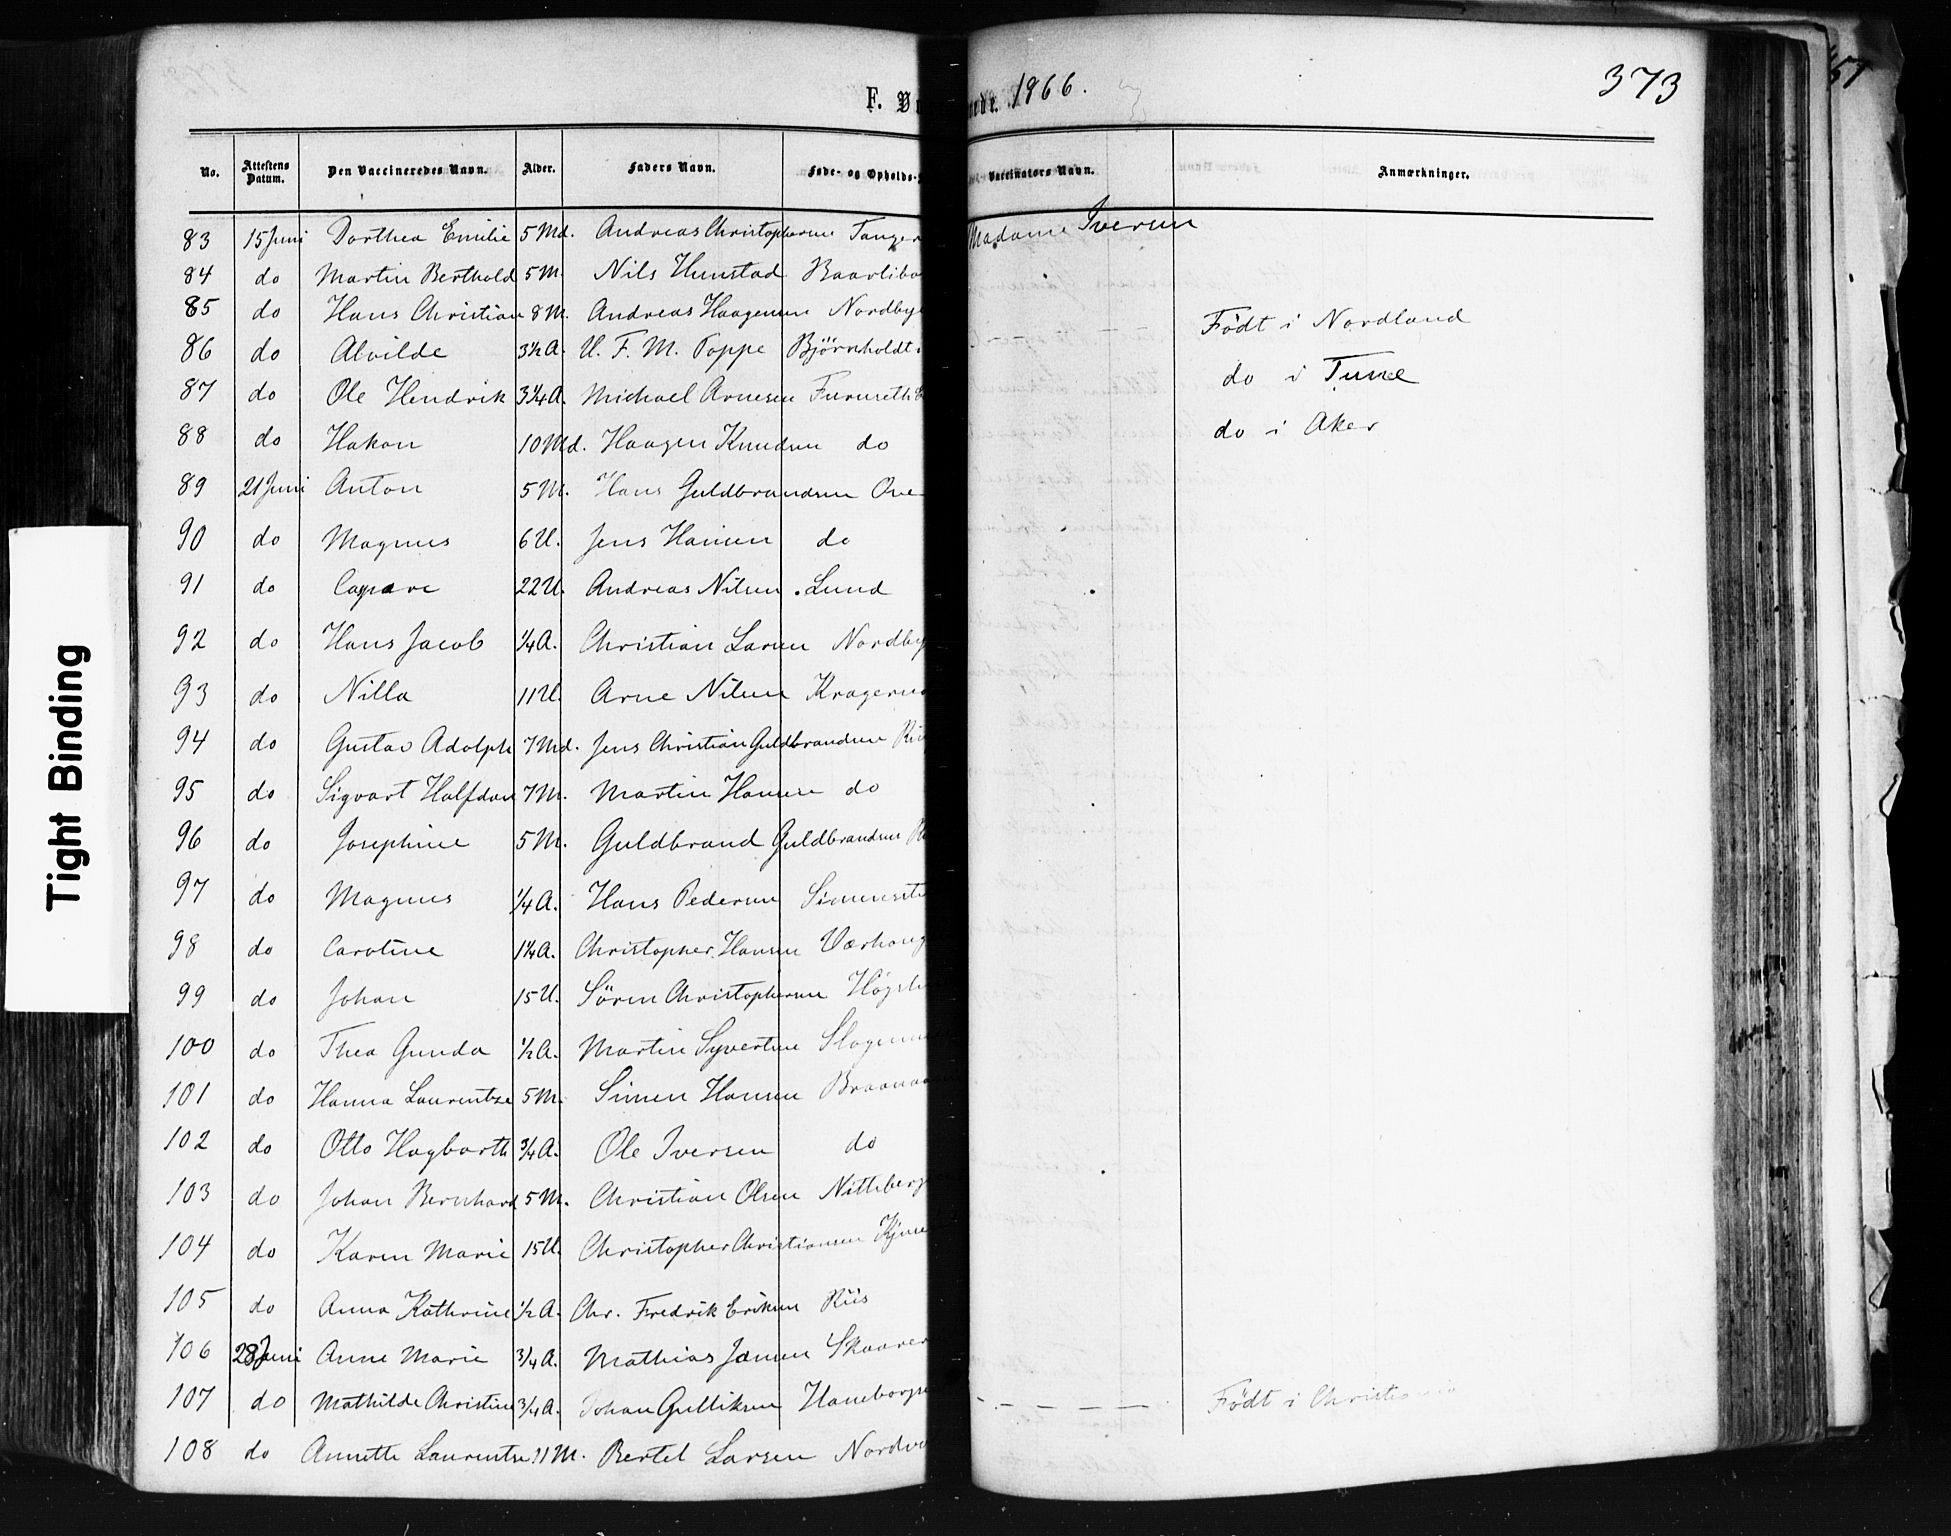 F. Va
nede. 1866.
373
51
No. Attestens Datum. Den Vaccineredes Navn. Alder. Faders Navn. Føde- og Opholds- Vaccinators Navn. Anmærkninger.
83 15 Juni Dorthea Emilie 5 Md. Andreas Christophersen Tanger Madame Iversen
84 do Martin Berthold 5 M. Nils Hunstad
85 do Hans Christian 8 M. Andreas Haagensen Nordbye
86 do Alvilde 3½ A. U. F. M. Poppe Bjørnholdt Født i Nordland
87 do Ole Hendrik 3¼ A. Michael Arnesen Furuseth do i Tune
88 do Hakon 10 Md. Haagen Knudsen do do i Aker
89 21 Juni Anton 5 M. Hans Guldbrandsen
90 do Magnus 6 U. Jens Hansen do
91 do 22 U. Andreas Nilsen Lund
92 do Hans Jacob ¼ A. Christian Larsen Nordby
93 do Nilla 11 U. Arne Nilsen
94 do Gustav Adolph 7 Md. Jens Christian Guldbrandsen
95 do Sigvart Halfdan 7 M. Martin Hansen do
96 do Josephine 5 M. Guldbrand Guldbrandsen
97 do Magnus ¼ A. Hans Pedersen
98 do Caroline 1¼ A. Christopher Hansen
99 do Johan 15 U. Sören Christophersen
100 do Thea Gunda ½ A. Martin Syvertsen
101 do Hanna Laurentze 5 M. Simen Hansen
102 do Otto Hagbarth ¾ A. Ole Iversen do
103 do Johan Bernhard 5 M. Christian Olsen Nitteberg
104 do Karen Marie 15 U. Christopher Christiansen
105 do Anna Kathrine ½ A. Chr. Fredrik Eriksen Riis
106 28 Juni Anne Marie ¾ A. Mathias Jansen Skaarer
107 do Mathilde Christine ¾ A. Johan Gulliksen Haneborg Født i Christiania
108 do Annette Laurentse 11 M. Bertel Larsen
Tight Binding